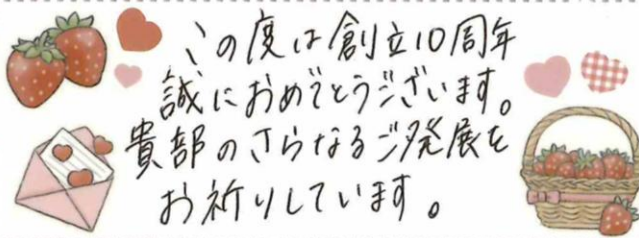 この度は創立10周年
誠におめでとうございます。
貴部のさらなるご発展を
お祈りしています。